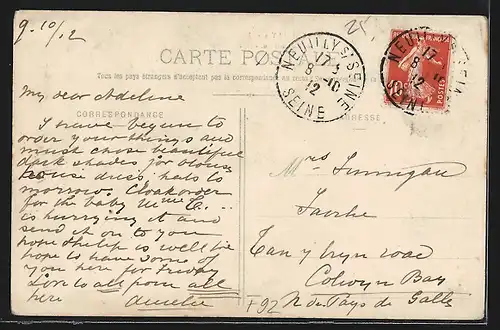 9.10/12
25.
CARTE POSTALE
Tous les pays étrangers n'acceptent pas la correspondance au recto
NEUILLY S/ SEINE
17
8 - 10
12
SEINE
NEUILLY
17
8 - 10
12
SEINE
10
POSTES
CORRESPONDANCE
ADRESSE
My dear Adeline
I have begun to
order your things and
must chose beautiful
dark shades for blouse
dress, hats to
morrow. Cloak order
for the baby Mme C.
is hurrying it and
send it on to you
hope Philip is well be
hope to have some of
you here for
Love to all from all
here Amelie
Mrs
Tan y bryn road
Colwyn Bay
N. du Pays de Galles
+92